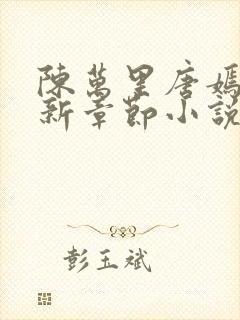 陳萬里唐嫣
新章節小說
彭玉斌